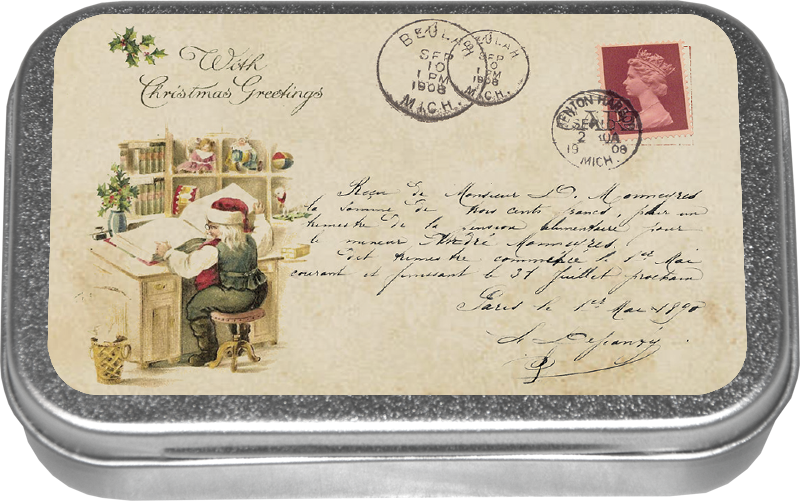 With
Christmas Greetings
BEULAH
SEP
10
1 PM
1908
MICH.
BEULAH
SEP
10
1 PM
1908
MICH.
BENTON HARBOR
SEP
2
19 08
MICH.
Reçu de Monsieur D. Monneyres
la somme de trois cents francs, pour un
trimestre de la pension alimentaire pour
le mineur André Monneyres
Ledit trimestre commence le 1er Mai
courant et finissant le 31 Juillet prochain
Paris le 1er Mai 1890